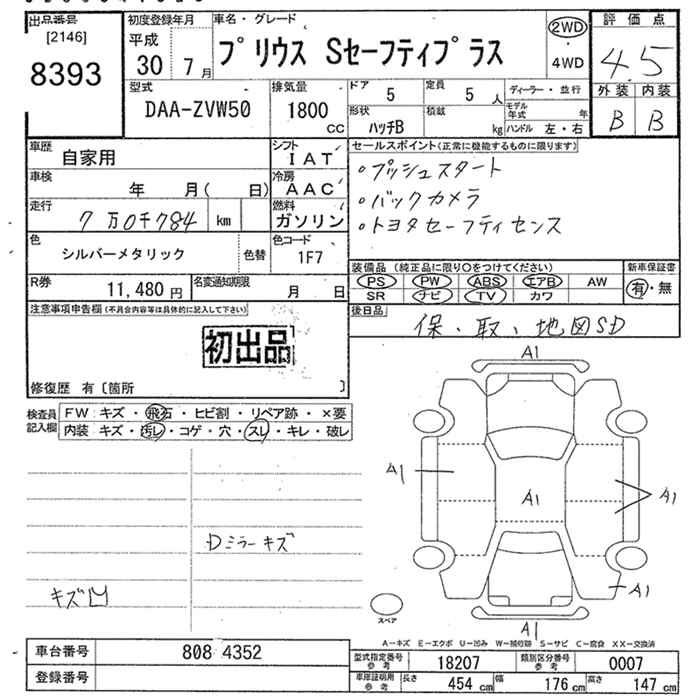 出品番号
[2146]
8393
初度登録年月
平成
30年 7月
車名・グレード
プリウス Sセーフティプラス
2WD
・
4WD
評価点
4.5
外装 内装
B B
型式
DAA-ZVW50
排気量
1800
cc
ドア
5
定員
5人
形状
ハッチB
積載
kg
ディーラー・並行
モデル年式 年
ハンドル 左・右
車歴
自家用
シフト
IAT
車検
年 月( 日)
冷房
AAC
走行
7万0千784 km
燃料
ガソリン
色
シルバーメタリック
色替
色コード
1F7
R券
11,480円
名変通知期限
月 日
セールスポイント(正常に機能するものに限ります)
・プッシュスタート
・バックカメラ
・トヨタセーフティセンス
装備品 (純正品に限り○をつけてください)
PS PW ABS エアB AW
SR ナビ TV カワ
新車保証書
有・無
後日品
保・取、地図SD
注意事項申告欄(不具合内容等は具体的に記入して下さい)
初出品
修復歴 有〔箇所 〕
検査員記入欄
FW キズ・飛石・ヒビ割・リペア跡・×要
内装 キズ・汚レ・コゲ・穴・スレ・キレ・破レ
Dミラーキズ
キズ凹
A1
A1
A1
A1
A1
A1
スペア
A-キズ E-エクボ U-凹み W-補修跡 S-サビ C-腐食 XX-交換済
車台番号
808 4352
登録番号
型式指定番号
参考
18207
類別区分番号
参考
0007
車庫証明用
参考
長さ 454 cm
幅 176 cm
高さ 147 cm